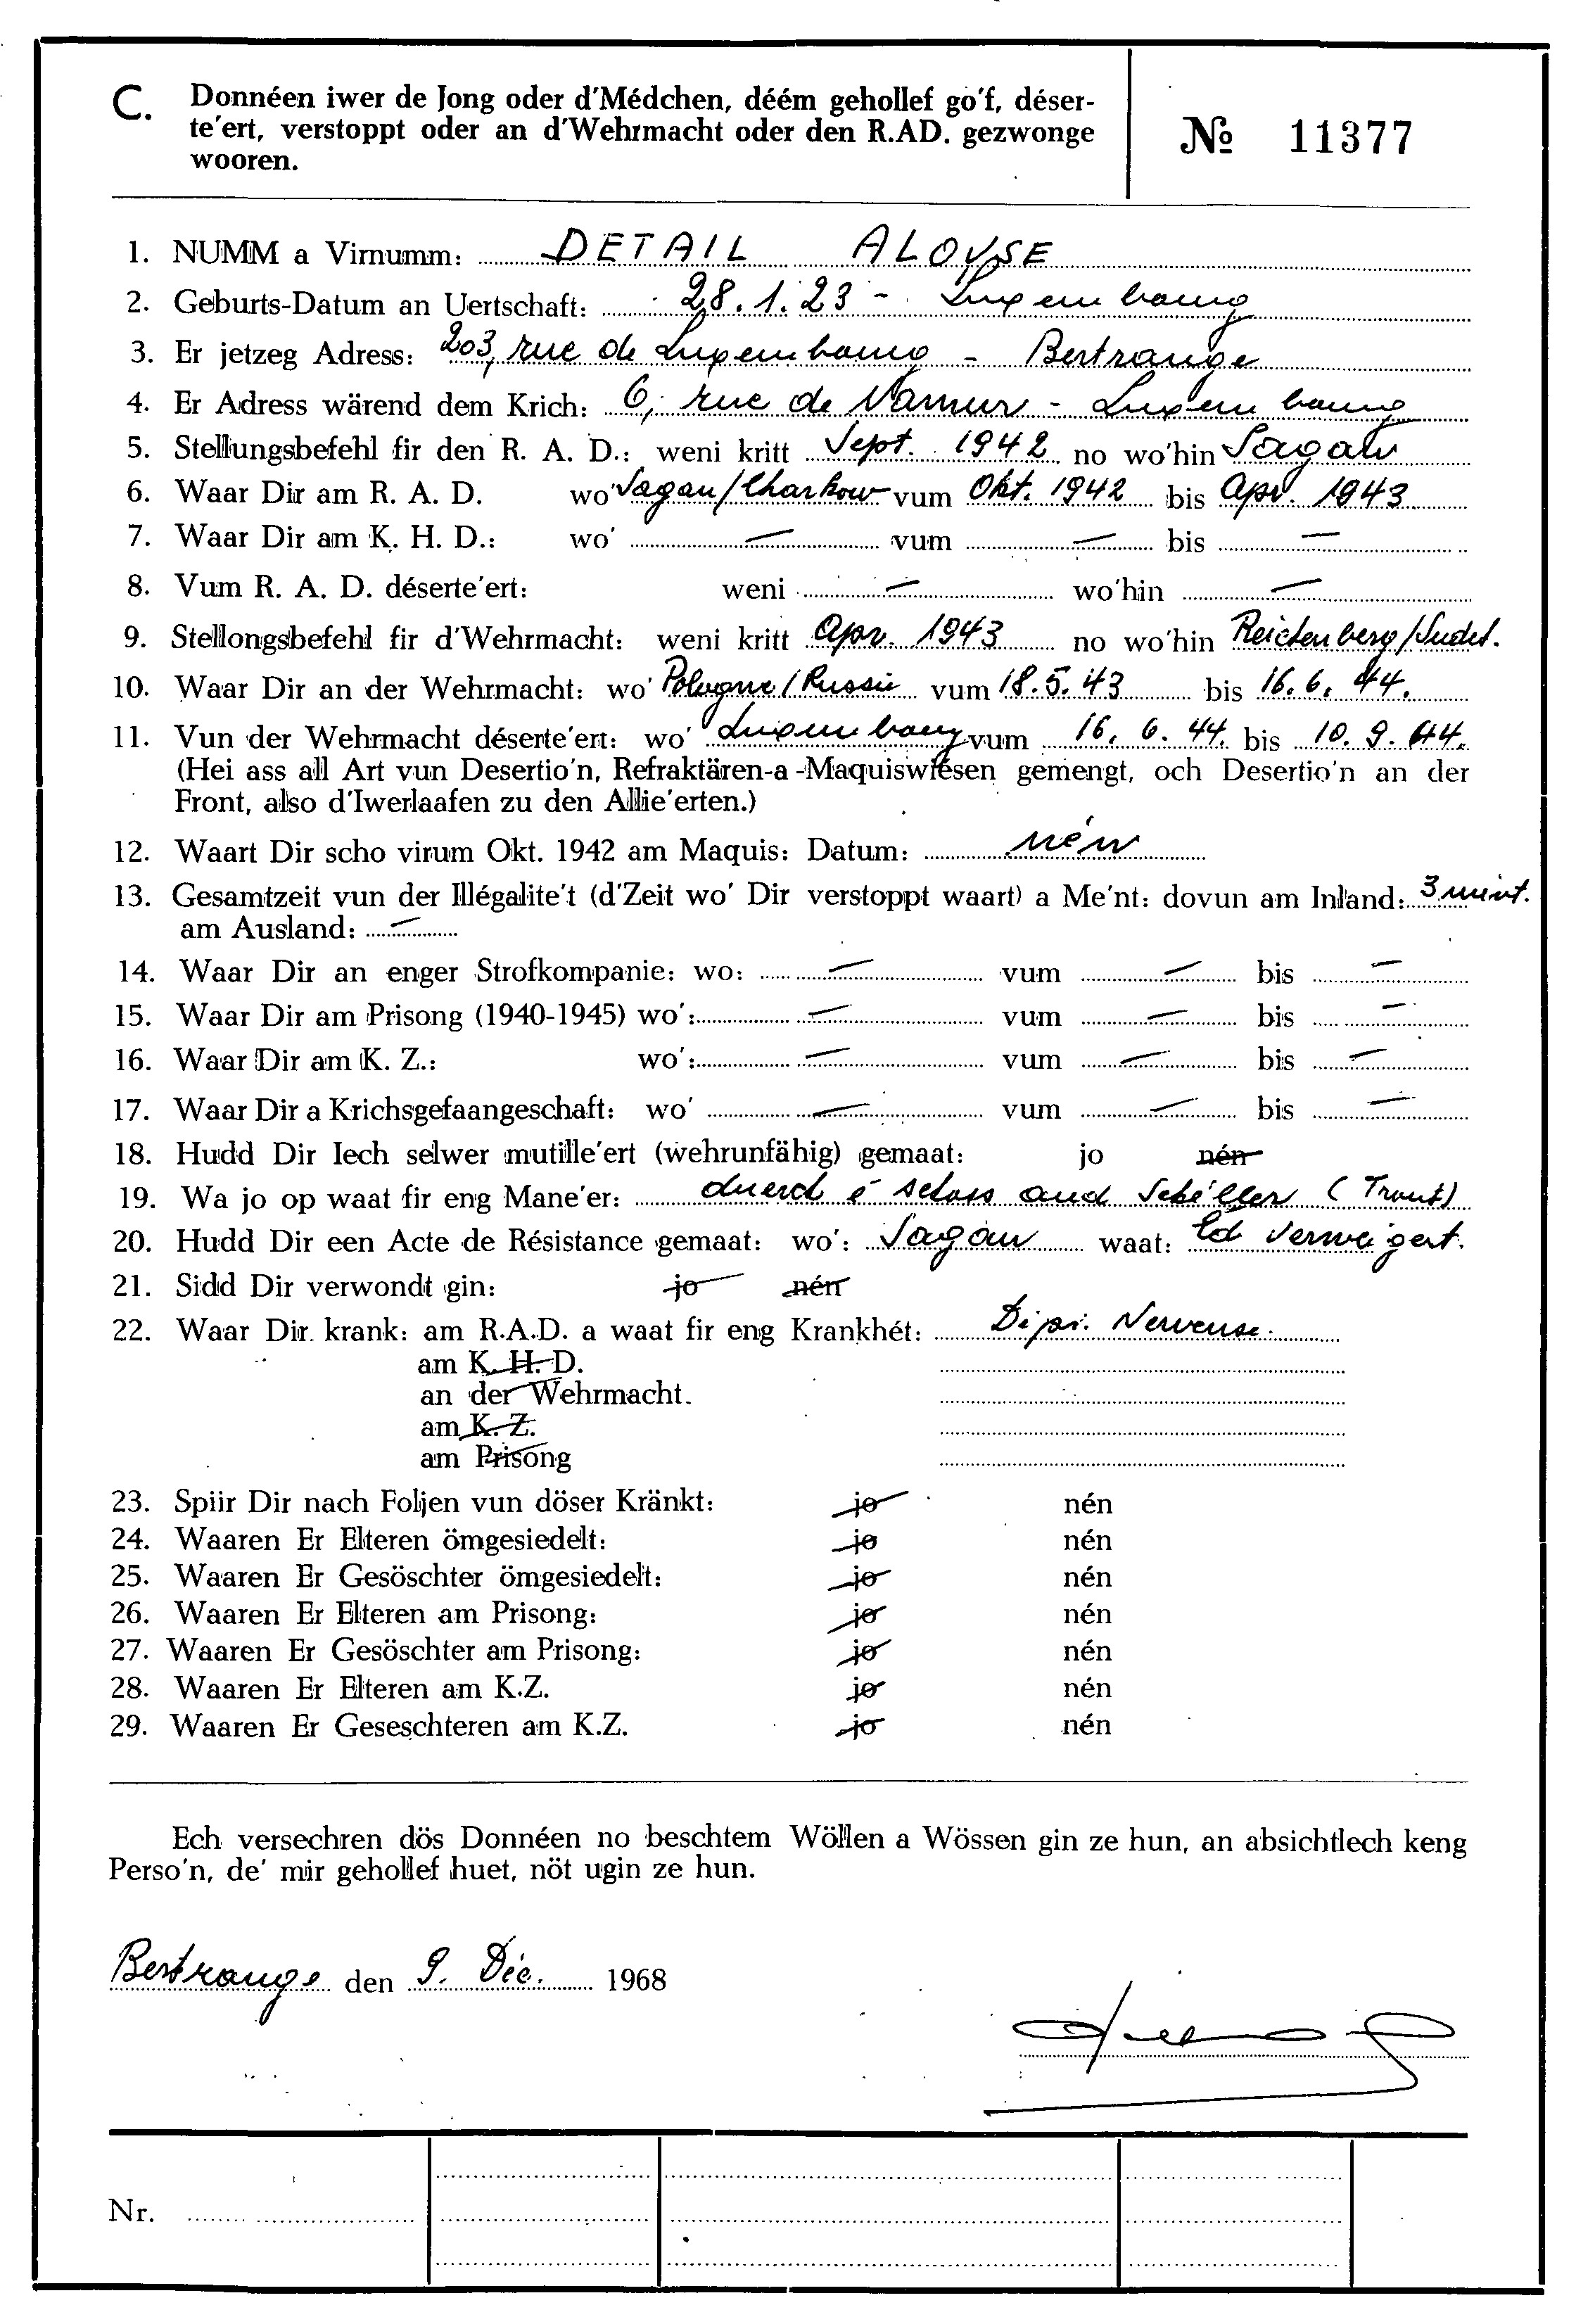 C. Donnéen iwer de Jong oder d'Médchen, déém gehollef go'f, déser-
te'ert, verstoppt oder an d'Wehrmacht oder den R.AD. gezwonge
wooren.
№ 11377
1. NUMM a Virnumm: DETAIL ALOYSE
2. Geburts-Datum an Uertschaft: 28.1.23 - Luxembourg
3. Er jetzeg Adress: 203, rue de Luxembourg - Bertrange
4. Er Adress wärend dem Krich: 6, rue de Namur - Luxembourg
5. Stellungsbefehl fir den R. A. D.: weni kritt Sept. 1942 no wo'hin Sagan
6. Waar Dir am R. A. D. wo' Sagan/Charkow vum Okt. 1942 bis Apr. 1943
7. Waar Dir am K. H. D.: wo' — vum — bis —
8. Vum R. A. D. déserte'ert: weni — wo'hin —
9. Stellongsbefehl fir d'Wehrmacht: weni kritt Apr. 1943 no wo'hin Reichenberg/Sudet.
10. Waar Dir an der Wehrmacht: wo' Pologne/Russie vum 18.5.43 bis 16.6.44.
11. Vun der Wehrmacht déserte'ert: wo' Luxembourg vum 16.6.44. bis 10.9.44.
(Hei ass all Art vun Desertio'n, Refraktären-a-Maquiswiesen gemengt, och Desertio'n an der
Front, also d'Iwerlaafen zu den Allie'erten.)
12. Waart Dir scho virum Okt. 1942 am Maquis: Datum: nén
13. Gesamtzeit vun der Illégalite't (d'Zeit wo' Dir verstoppt waart) a Me'nt: dovun am Inland: 3 mint.
am Ausland: —
14. Waar Dir an enger Strofkompanie: wo: — vum — bis —
15. Waar Dir am Prisong (1940-1945) wo': — vum — bis —
16. Waar Dir am K. Z.: wo': — vum — bis —
17. Waar Dir a Krichsgefaangeschaft: wo' — vum — bis —
18. Hudd Dir Iech selwer mutille'ert (wehrunfähig) gemaat: jo nén
19. Wa jo op waat fir eng Mane'er: duerch é schoss and (Tront)
20. Hudd Dir een Acte de Résistance gemaat: wo': Sagan waat: Ed verweigert.
21. Sidd Dir verwondt gin: jo nén
22. Waar Dir krank: am R.A.D. a waat fir eng Krankhét: Dipr. Nerveuse.
am K. H. D.
an der Wehrmacht.
am K. Z.
am Prisong
23. Spiir Dir nach Foljen vun döser Kränkt: jo nén
24. Waaren Er Elteren ömgesiedelt: jo nén
25. Waaren Er Gesöschter ömgesiedelt: jo nén
26. Waaren Er Elteren am Prisong: jo nén
27. Waaren Er Gesöschter am Prisong: jo nén
28. Waaren Er Elteren am K.Z. jo nén
29. Waaren Er Geseschteren am K.Z. jo nén
Ech versechren dös Donnéen no beschtem Wöllen a Wössen gin ze hun, an absichtlech keng
Perso'n, de' mir gehollef huet, nöt ugin ze hun.
Bertrange den 9. Déc. 1968
Nr.